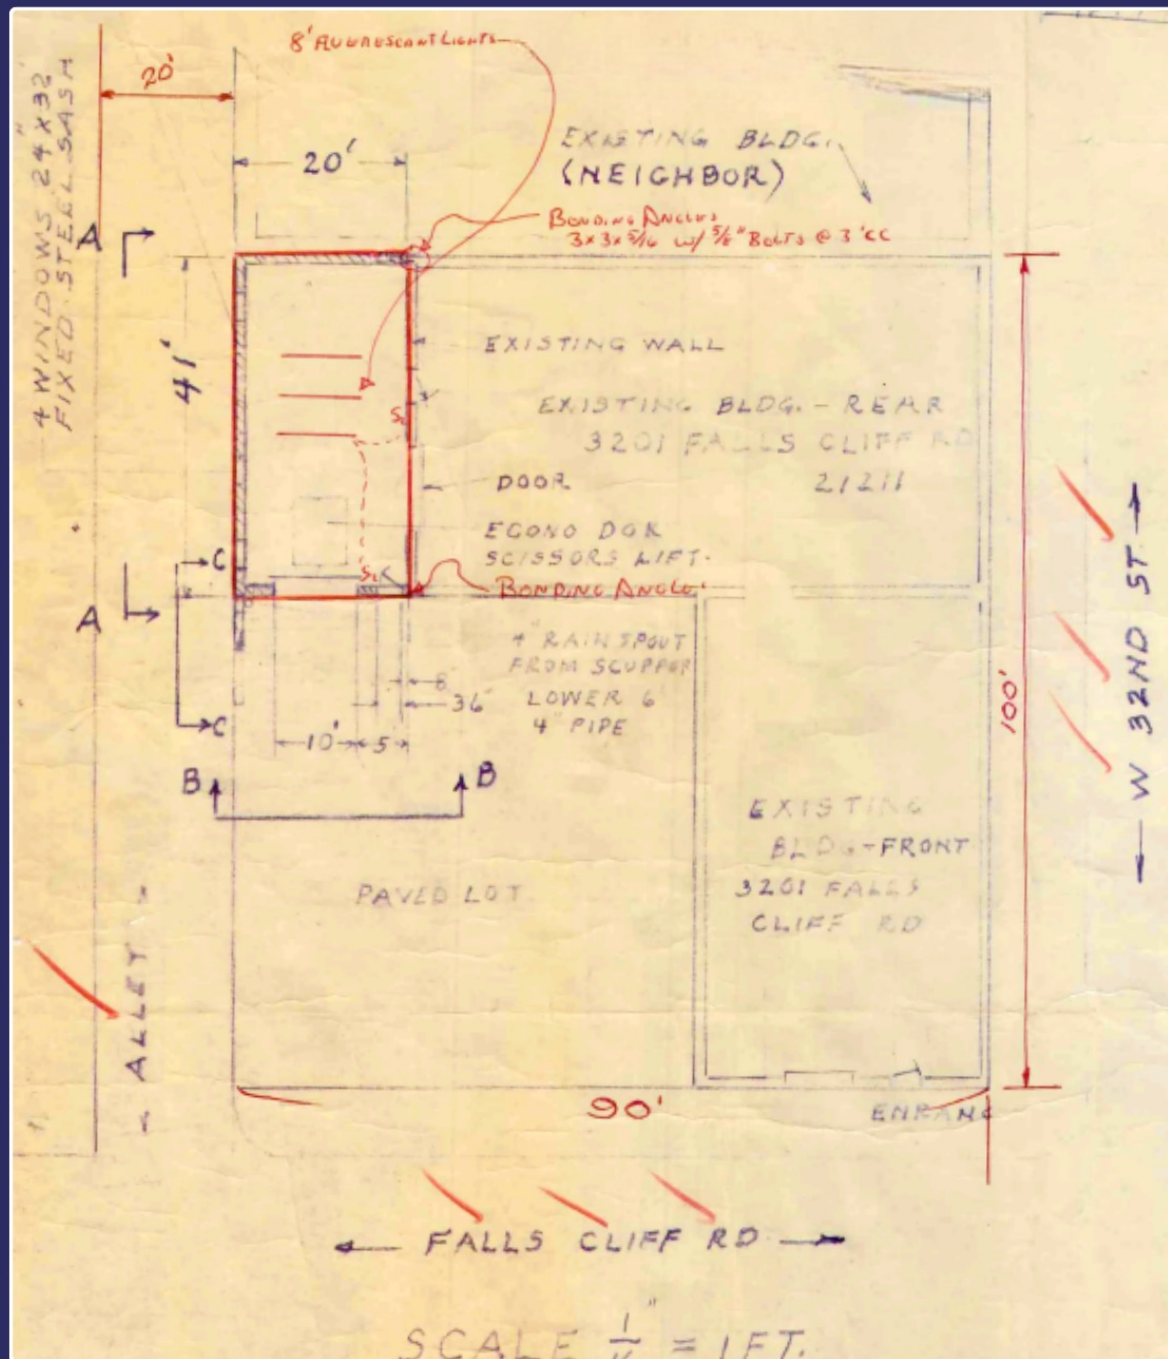 8' FLUORESCANT LIGHTS
20'
4 WINDOWS 24" X 32"
FIXED STEEL SASH
20'
EXISTING BLDG.
(NEIGHBOR)
BONDING ANGLES
3x3x5/16 w/ 5/8" BOLTS @ 3'CC
A
41'
EXISTING WALL
EXISTING BLDG. - REAR
3201 FALLS CLIFF RD
21211
DOOR
ECONO DOK
SCISSORS LIFT.
BONDING ANGLE
C
A
4" RAIN SPOUT
FROM SCUPPER
LOWER 6'
4" PIPE
8
36"
C
10'
5'
B
B
100'
W 32ND ST.
EXISTING
BLDG-FRONT
3201 FALLS
CLIFF RD
PAVED LOT
ALLEY
90'
ENRANC
FALLS CLIFF RD
SCALE = 1 FT.